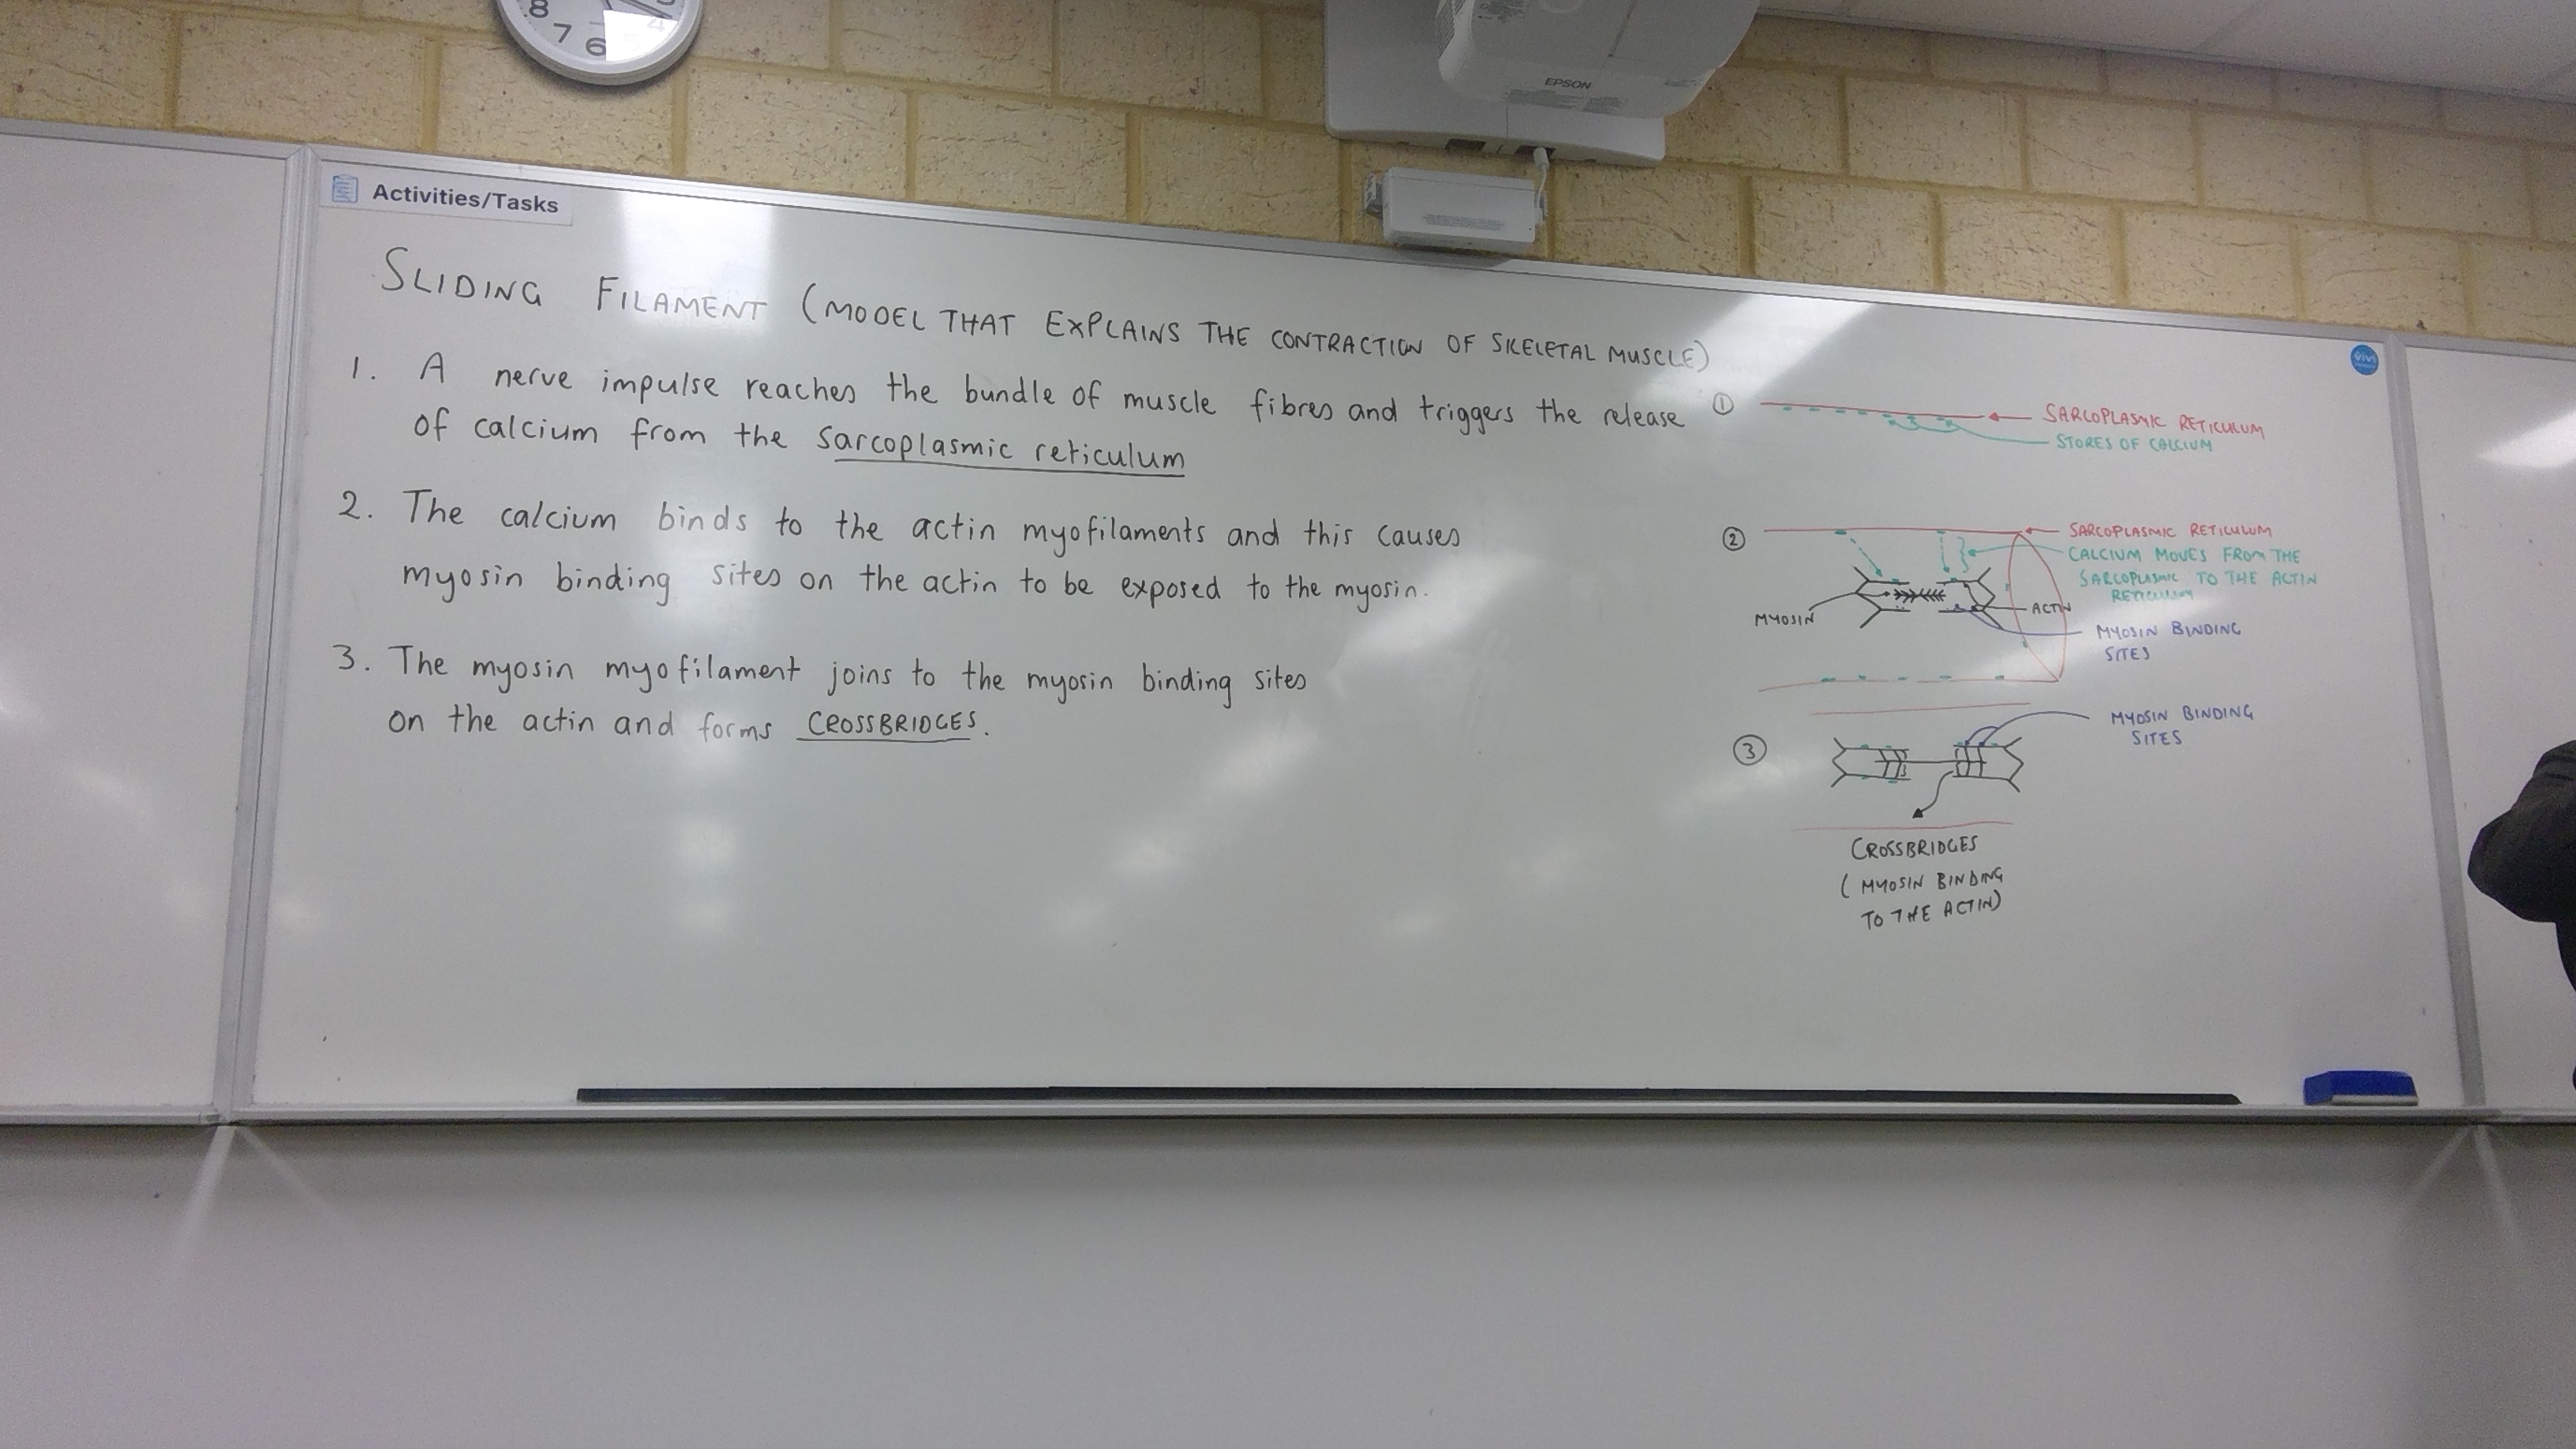 8
7
6
4
EPSON
Activities/Tasks
SLIDING FILAMENT (MODEL THAT EXPLAINS THE CONTRACTION OF SKELETAL MUSCLE)
1. A nerve impulse reaches the bundle of muscle fibres and triggers the release
of calcium from the sarcoplasmic reticulum
2. The calcium binds to the actin myofilaments and this causes
myosin binding sites on the actin to be exposed to the myosin.
3. The myosin myofilament joins to the myosin binding sites
on the actin and forms CROSSBRIDGES.
vivi
1
SARCOPLASMIC RETICULUM
STORES OF CALCIUM
2
SARCOPLASMIC RETICULUM
CALCIUM MOVES FROM THE
SARCOPLASMIC TO THE ACTIN
RETICULUM
MYOSIN
ACTIN
MYOSIN BINDING
SITES
3
MYOSIN BINDING
SITES
CROSSBRIDGES
(MYOSIN BINDING
TO THE ACTIN)